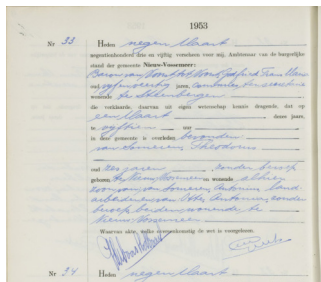 1953
Nr 33 Heden negen Maart
negentienhonderd drie en vijftig verscheen voor mij, Ambtenaar van de burgerlijke
stand der gemeente Nieuw-Vossemeer:
Baron van Voorst tot Voorst Godfried Frans Maria
oud vijfenveertig jaren,
wonende te Steenbergen
die verklaarde, daarvan uit eigen wetenschap kennis dragende, dat op
een Maart dezes jaars,
te vijftien uur
in deze gemeente is overleden, bevonden
van Someren Theodorus
oud zes jaren, zonder beroep
geboren te Nieuw Vossemeer en wonende aldaar
zoon van van Someren Antonius land
arbeider en van Antonia zonder
beroep beiden wonende te
Nieuw Vossemeer
Waarvan akte, welke overeenkomstig de wet is voorgelezen.
Nr 34 Heden negen Maart